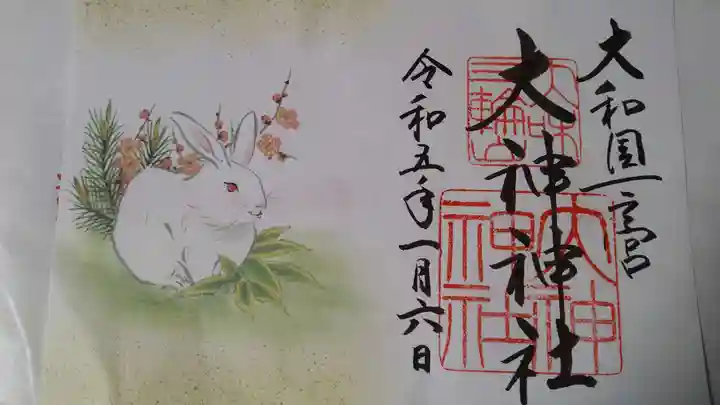 大和国一宮
大神神社
令和五年一月六日
三輪
大神
神社